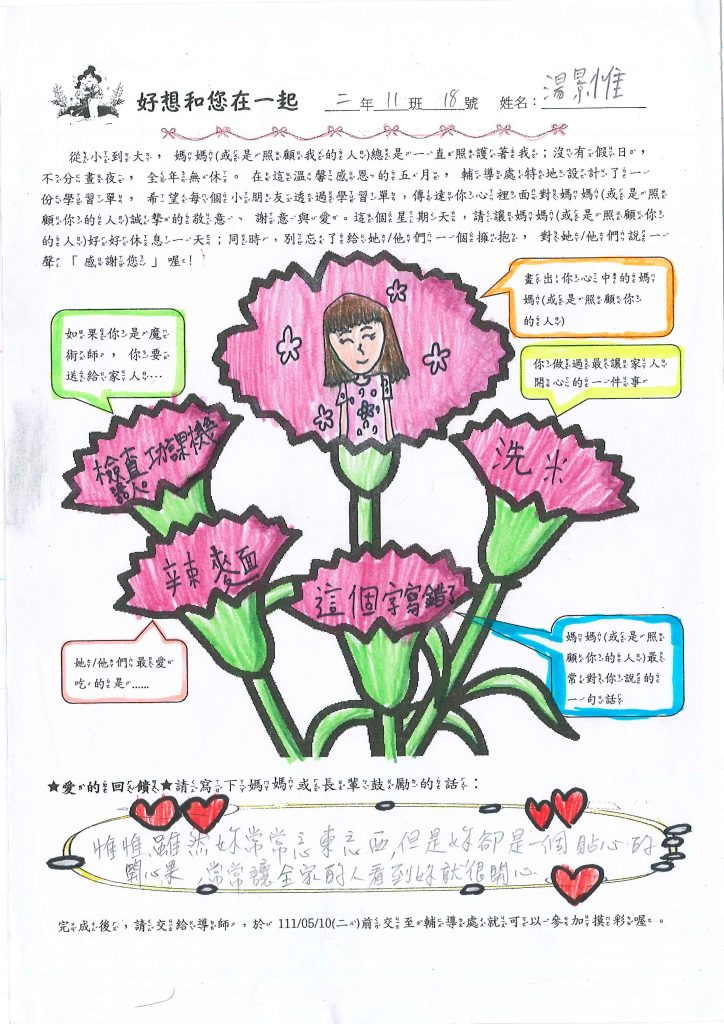 好想和您在一起 二年11班18號 姓名：湯景惟
從小到大，媽媽(或是照顧我的人)總是一直照護著我；沒有假日，
不分晝夜，全年無休。在這溫馨感恩的五月，輔導處特地設計了一
份學習單，希望每個小朋友透過學習單，傳達你心裡面對媽媽(或是照
顧你的人)誠摯的敬意、謝意與愛。這個星期天，請讓媽媽(或是照顧你
的人)好好休息一天；同時，別忘了給她/他們一個擁抱，對她/他們說一
聲「感謝您」喔！
畫出你心中的媽
媽(或是照顧你
的人)
如果你是魔
術師，你要
送給家人…
你做過最讓家人
開心的一件事
檢查功課機
器人
洗米
辣麵
這個字寫錯了
她/他們最愛
吃的是……
媽媽(或是照
顧你的人)最
常對你說的
一句話
★愛的回饋★請寫下媽媽或長輩鼓勵的話：
惟惟,雖然妳常常忘東忘西,但是妳卻是一個貼心的
開心果,常常讓全家的人看到妳就很開心
完成後，請交給導師，於 111/05/10(二)前交至輔導處就可以參加摸彩喔。